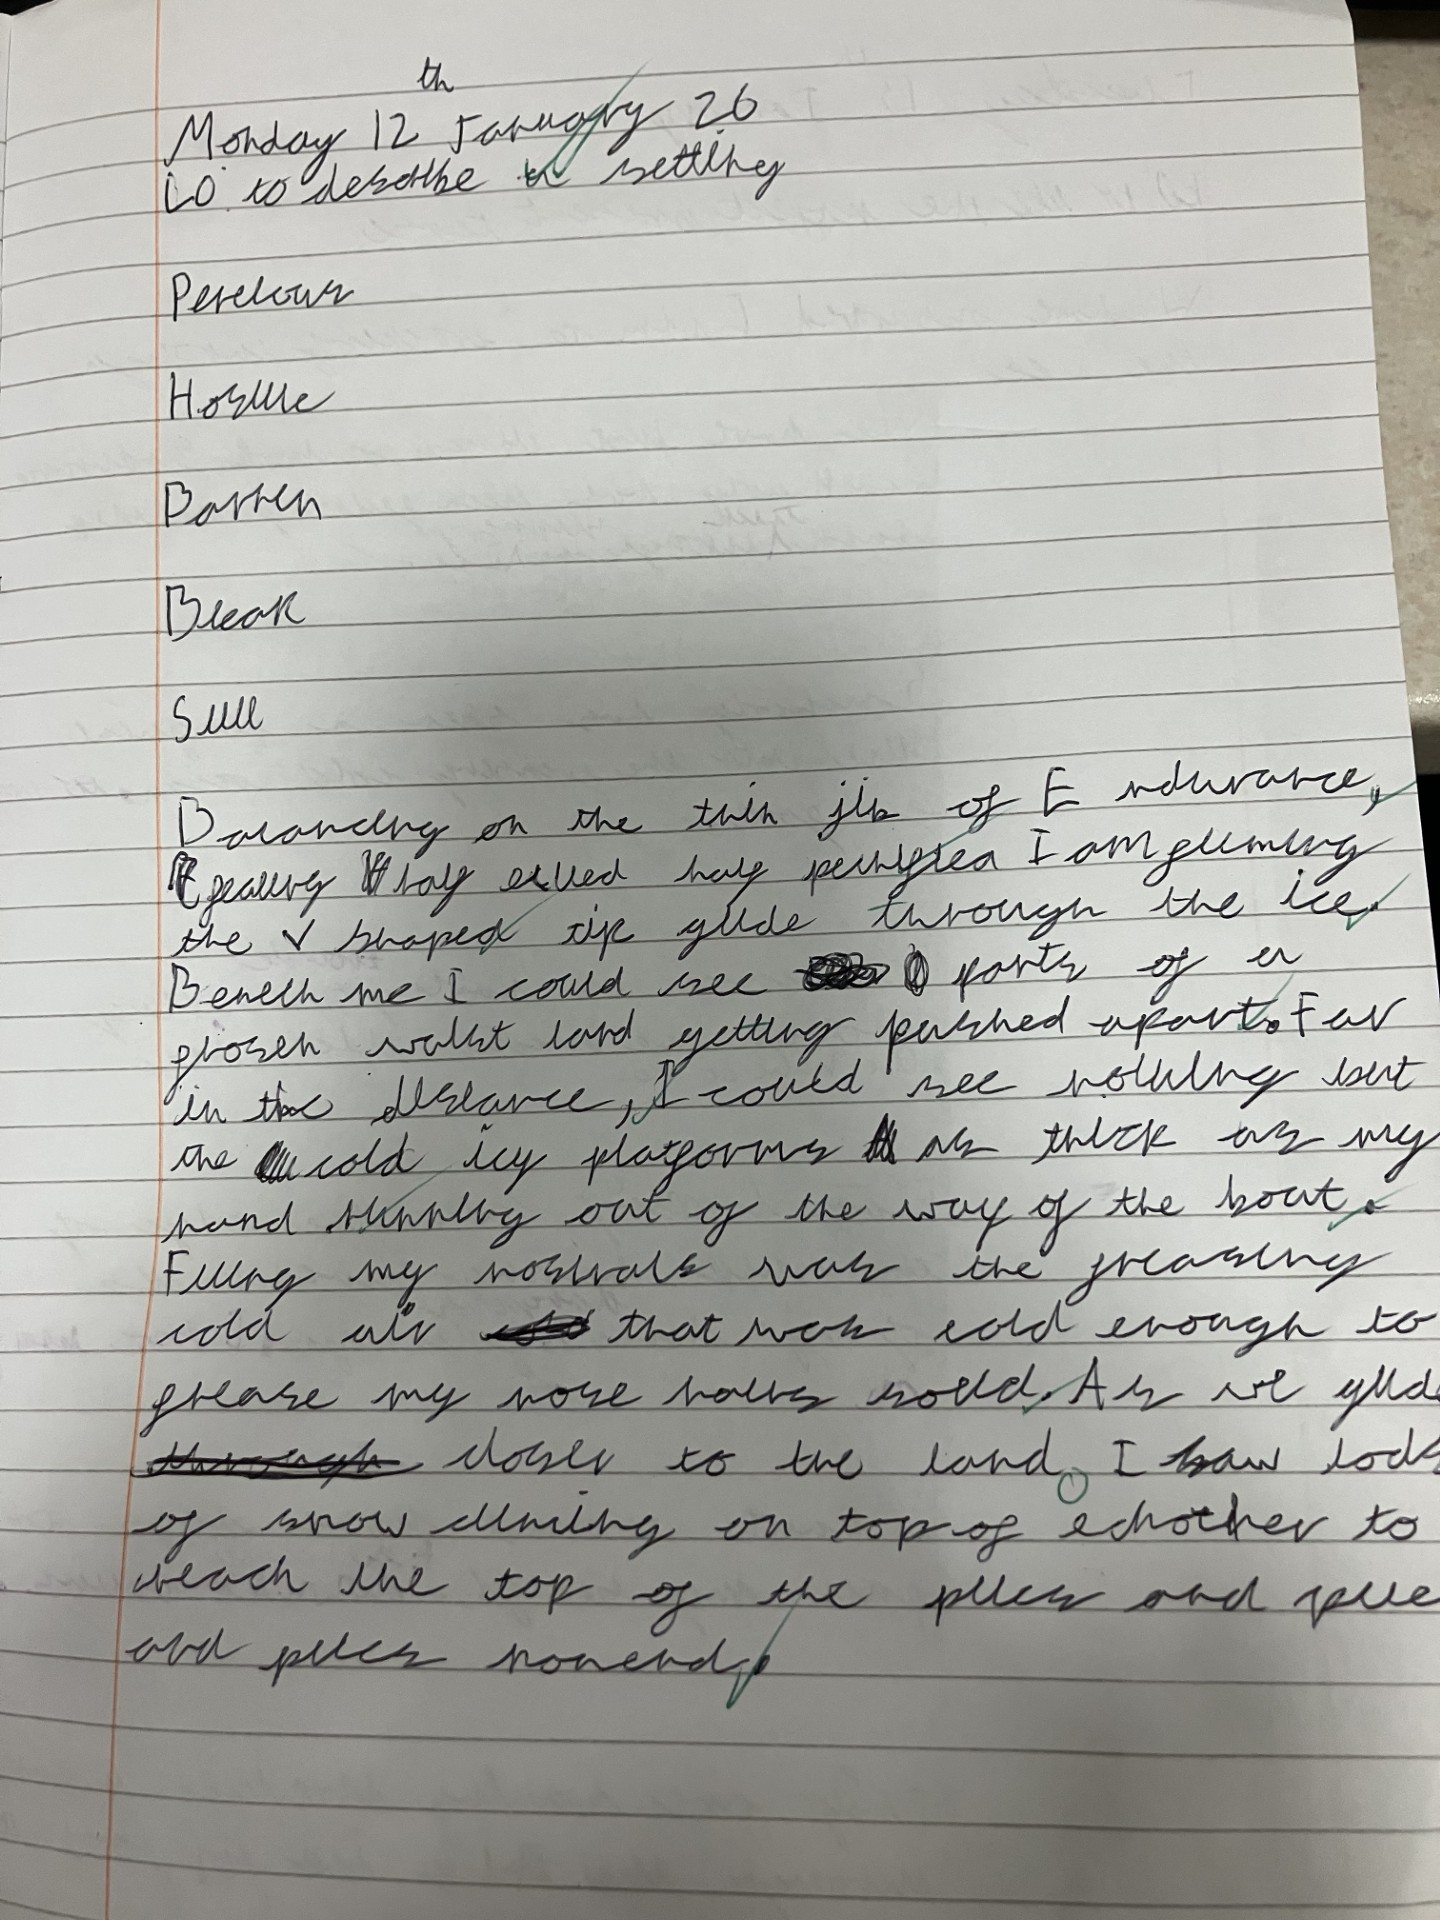 th
Monday 12 January 26
LO to describe a setting
Perelour
Hostile
Barren
Bleak
Still
Balancing on the thin jib of Endurance,
feeling half exited half petrified I am filming
the V shaped tip glide through the ice.
Beneth me I could see parts of a
frozen walst land getting pushed apart. Far
in the distance, I could see nothing but
the cold icy platforms as thick as my
hand slipping out of the way of the boat.
Filling my nostrals was the freasing
cold air that was cold enough to
frease my nose hairs solid. As we glide
through closer to the land I saw lods
of snow climing on top of echother to
reach the top of the piles and pile
and piles nonend.